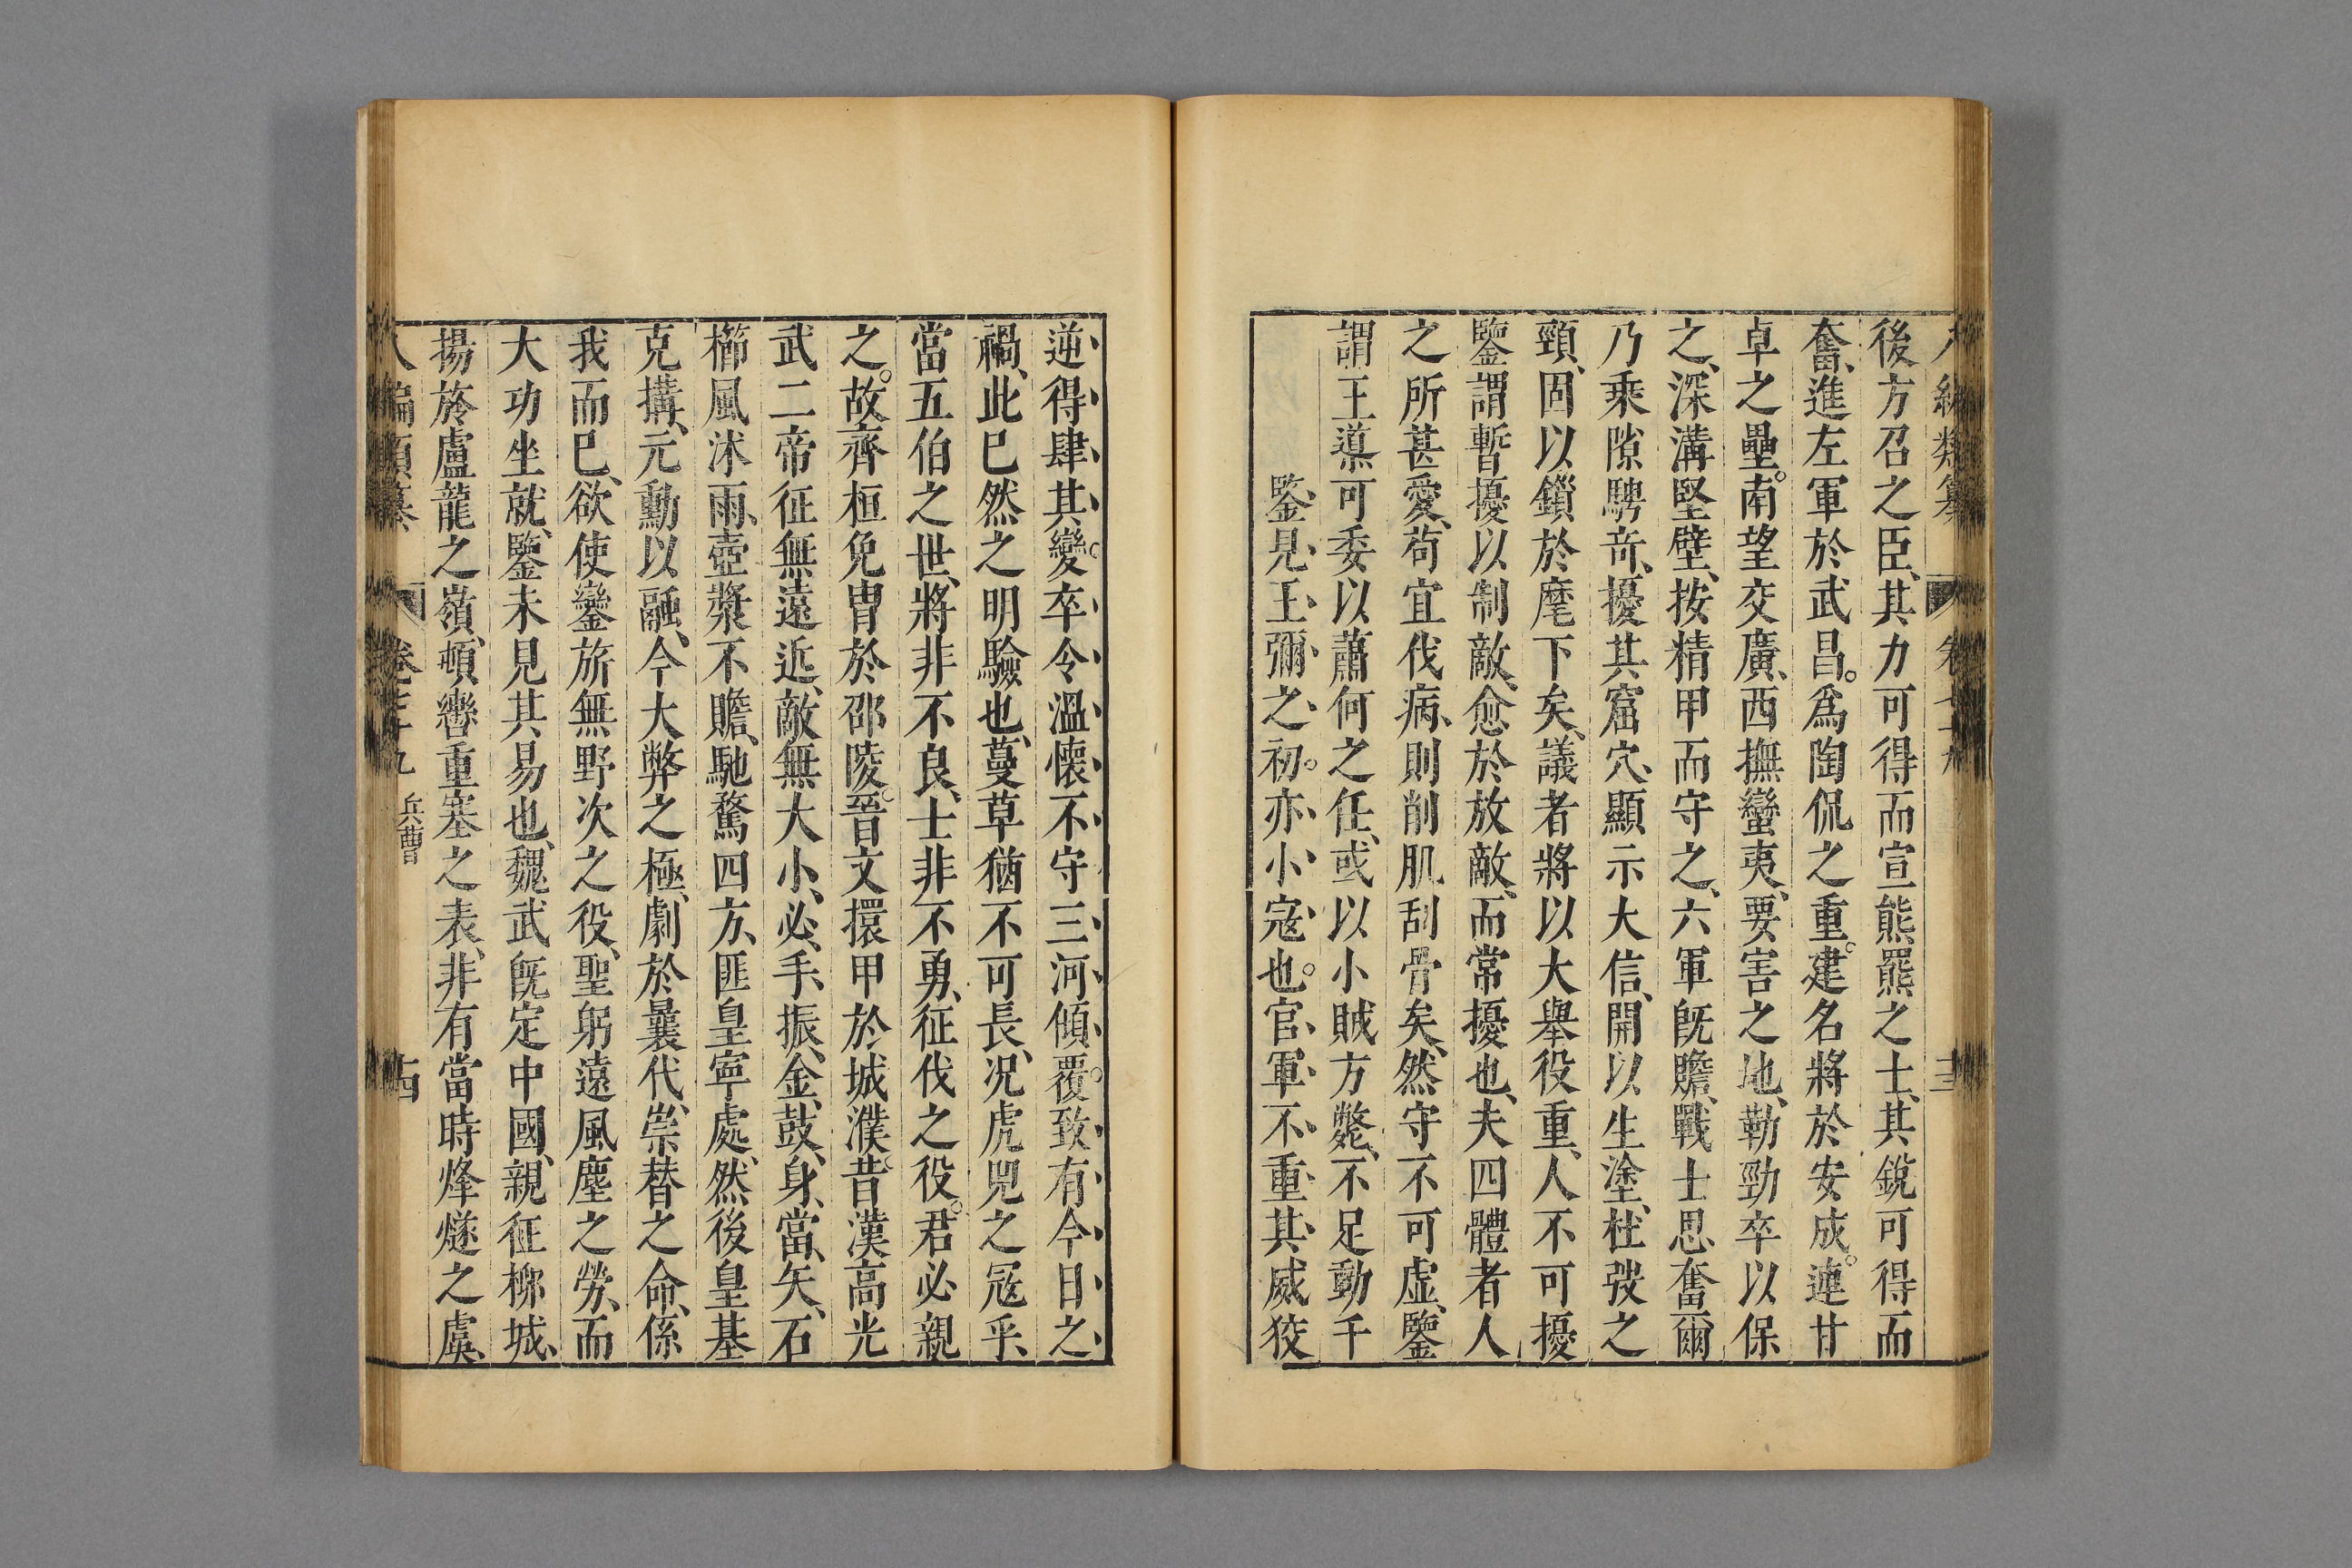 後方召之臣、其力可得而宣熊羆之士、其銳可得而
奮、進左軍於武昌。爲陶侃之重。建名將於安成。連甘
卓之壘。南望交廣、西撫蠻夷、要害之地、勒勁卒以保
之、深溝堅壁、按精甲而守之、六軍旣贍、戰士思奮、爾
乃乘隙騁奇、擾其窟穴、顯示大信、開以生塗、杜弢之
頸、固以鎖於麾下矣、議者將以大舉役重、人不可擾
鑒謂暫擾以制敵、愈於放敵、而常擾也、夫四體者人
之所甚愛、荷宜伐病、則削肌刮骨矣、然守不可虛、鑒
謂王導可委以蕭何之任、或以小賊方斃、不足動千
鑒見王彌之初。亦小寇也。官軍不重其威狡
逆得肆其變。卒令溫懷不守三河傾覆。致有今日之
禍、此已然之明驗也、蔓草猶不可長、況虎兕之寇乎、
當五伯之世、將非不良、士非不勇、征伐之役。君必親
之。故齊桓免冑於邵陵。晉文擐甲於城濮。昔漢高光
武二帝征無遠近、敵無大小、必手振金鼓、身當矢石
櫛風沐雨、壺漿不贍、馳騖四方、匪皇寧處、然後皇基
克搆、元勳以融、今大弊之極、劇於曩代、崇替之命、係
我而已、欲使鑾旂無野次之役、聖躬遠風塵之勞、而
大功坐就、鑒未見其易也、魏武旣定中國、親征柳城、
揚於盧龍之嶺、頓轡重塞之表、非有當時烽燧之虞、
八編類纂 卷七十九 兵曹 十四